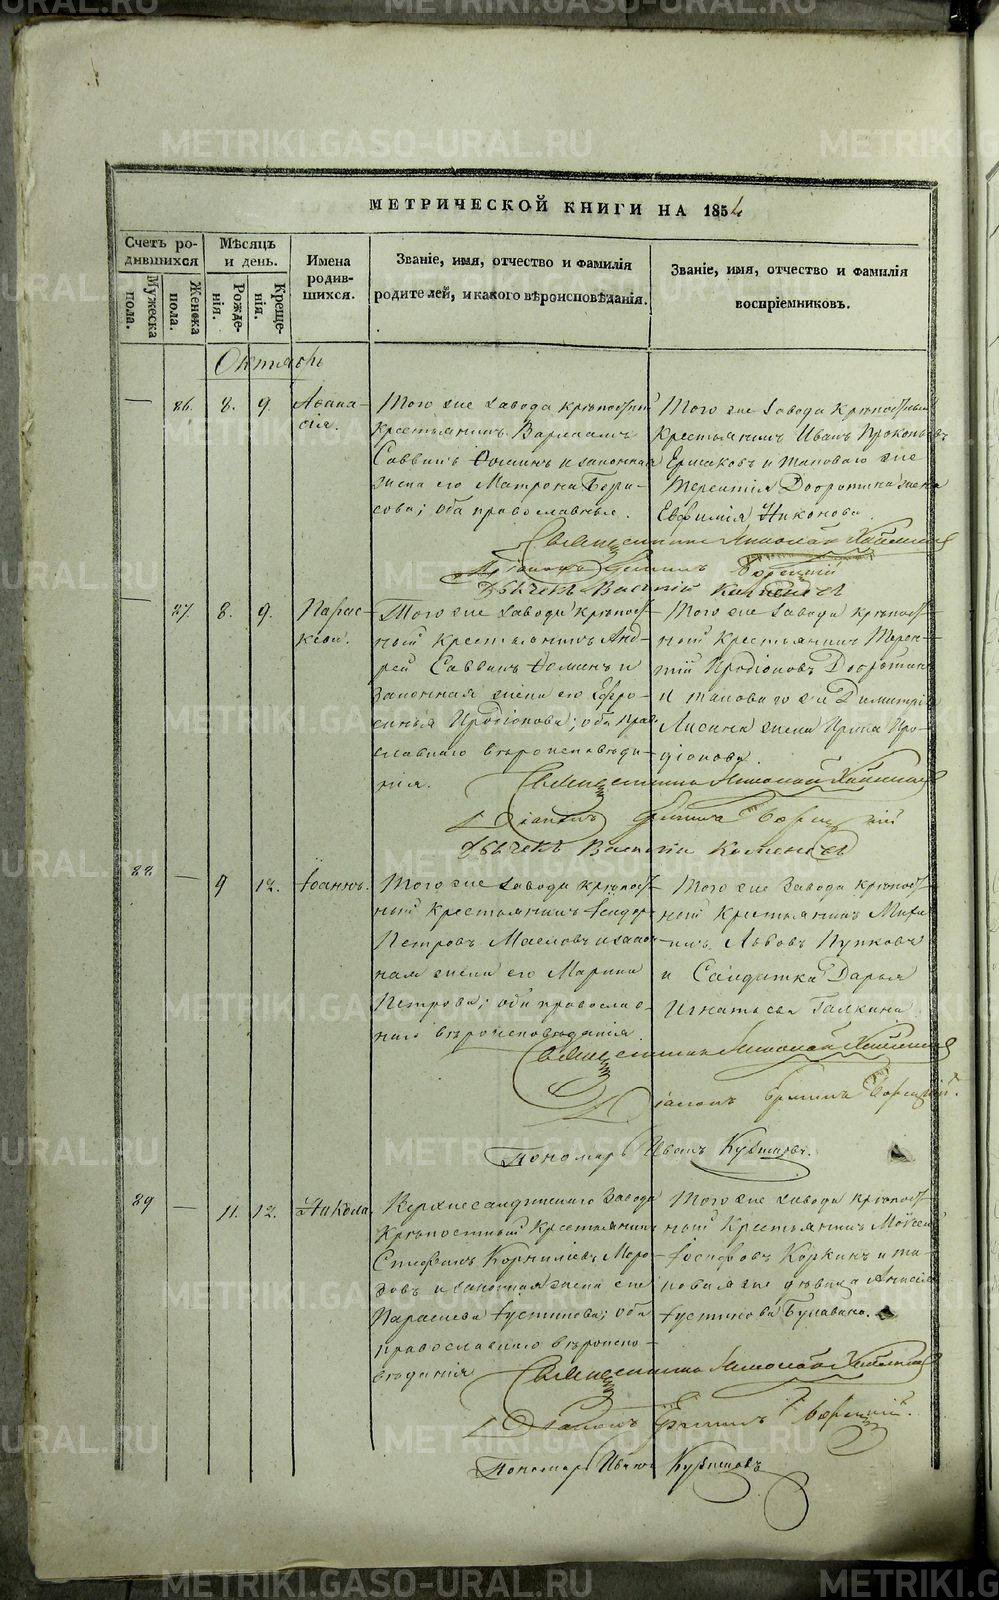 МЕТРИЧЕСКОЙ КНИГИ НА 1854
Счетъ ро-
дившихся
Мужеска
пола.
Женска
пола.
Мѣсяцъ
и день.
Рожде-
нія.
Креще-
нія.
Имена
родив-
шихся.
Званіе, имя, отчество и фамилія
родителей, и какого вѣроисповѣданія.
Званіе, имя, отчество и фамилія
воспріемниковъ.
Октябрь
— 86. 8. 9.
Аѳана-
сія.
Того же завода крѣпостный
крестьянинъ Варлаамъ
Саввинъ Ѳоминъ и законная
жена его Матрона Бори-
сова; оба православные.
Того же завода крѣпостный
крестьянинъ Иванъ Прокопьевъ
Ершковъ и таковаго же
Терентія Добротина жена
Евфимія Никонова.
Священникъ Николай
Діаконъ Ермилъ Творецкій
Дьячекъ Василій
— 87. 8. 9.
Парас-
кева.
Того же завода крѣпост-
ный крестьянинъ Анд-
рей Саввинъ Ѳоминъ и
законная жена его Ефро-
синья Иродіонова; оба пра-
славнаго вѣроисповѣда-
нія.
Того же завода крѣпост-
ный крестьянинъ Терен-
тій Иродіоновъ Добротинъ
и таковаго же Димитрія
Лисина жена Ирина Иро-
діонова.
Священникъ Николай
Діаконъ Ермилъ Творецкій
Дьячекъ Василій
88. — 9 12.
Іоаннъ.
Того же завода крѣпост-
ный крестьянинъ Ѳедоръ
Петровъ Масловъ и закон-
ная жена его Марина
Петрова; оба православ-
наго вѣроисповѣданія.
Того же завода крѣпост-
ный крестьянинъ Миха-
илъ Львовъ Пупковъ
и Салдатка Дарья
Игнатьева Галкина.
Священникъ Николай
Діаконъ Ермилъ Творецкій.
Пономарь Иванъ
89 — 11. 12.
Никола
Верхнесалдинскаго завода
крѣпостный крестьянинъ
Стефанъ Корниліевъ Моро-
зовъ и законная жена его
Параскева Іустинова; оба
православнаго вѣроиспо-
вѣданія
Того же завода крѣпост-
ный крестьянинъ Моѵсей
Іосифовъ Коркинъ и та-
коваго же дѣвица Анисія
Іустинова Булавина.
Священникъ Николай
Діаконъ Ермилъ Творецкій.
Пономарь Иванъ
METRIKI.GASO-URAL.RU